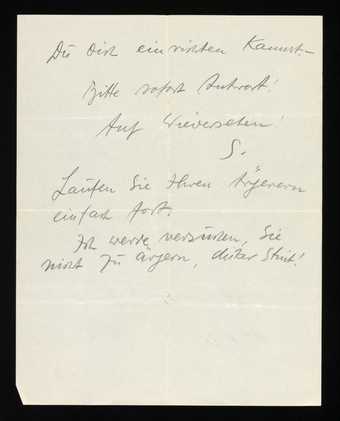 Du Dich einrichten kannst.–
Bitte sofort Antwort!
Auf Wiedersehen!
S.
Laufen Sie Ihren Ärgerern
einfach fort.
Ich werde versuchen, Sie
nicht zu ärgern,